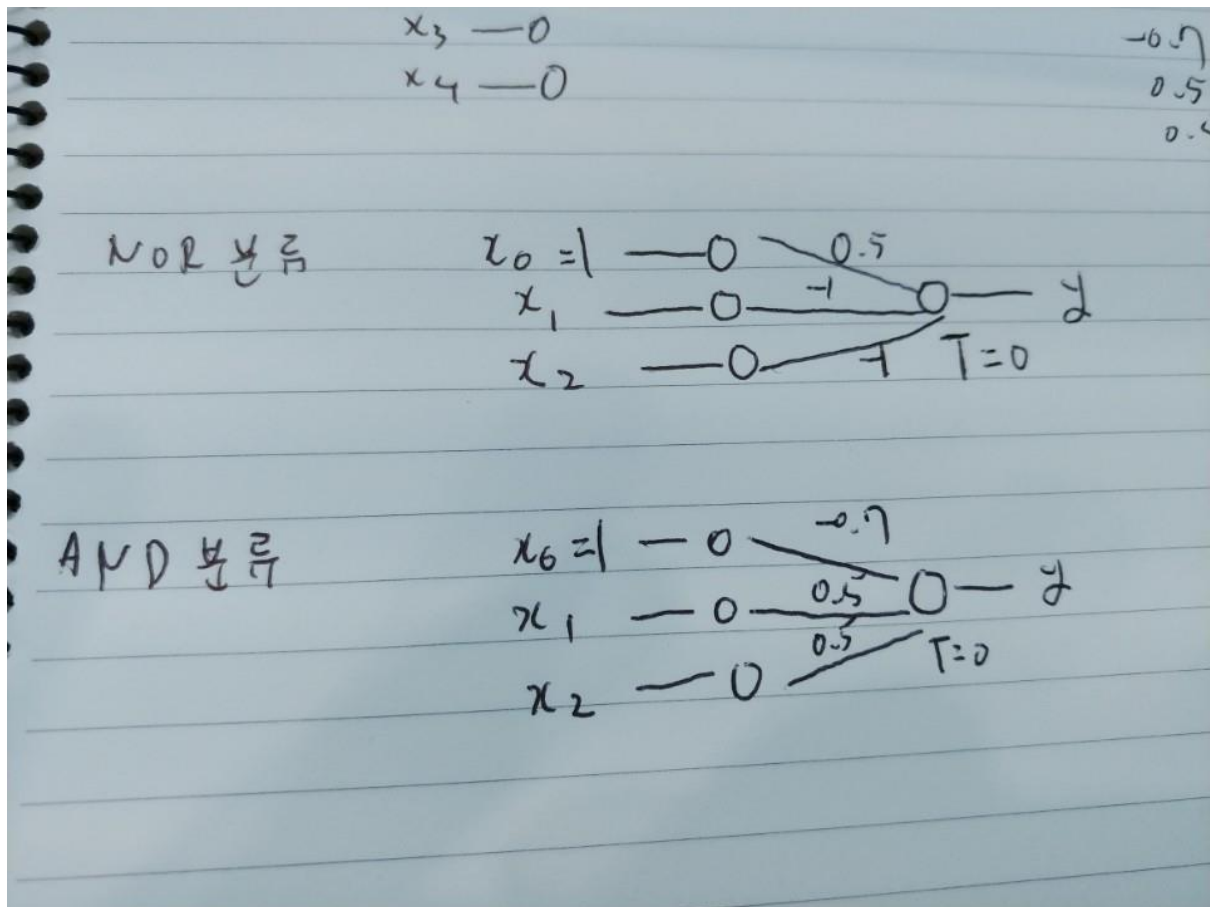 x3 0
x4 0
-0.7
0.5
NOR 분류
x0 =1 0.5
x1 -1 y
x2 -1 T=0
AND 분류
x0 =1 -0.7
x1 0.5 y
x2 0.5 T=0